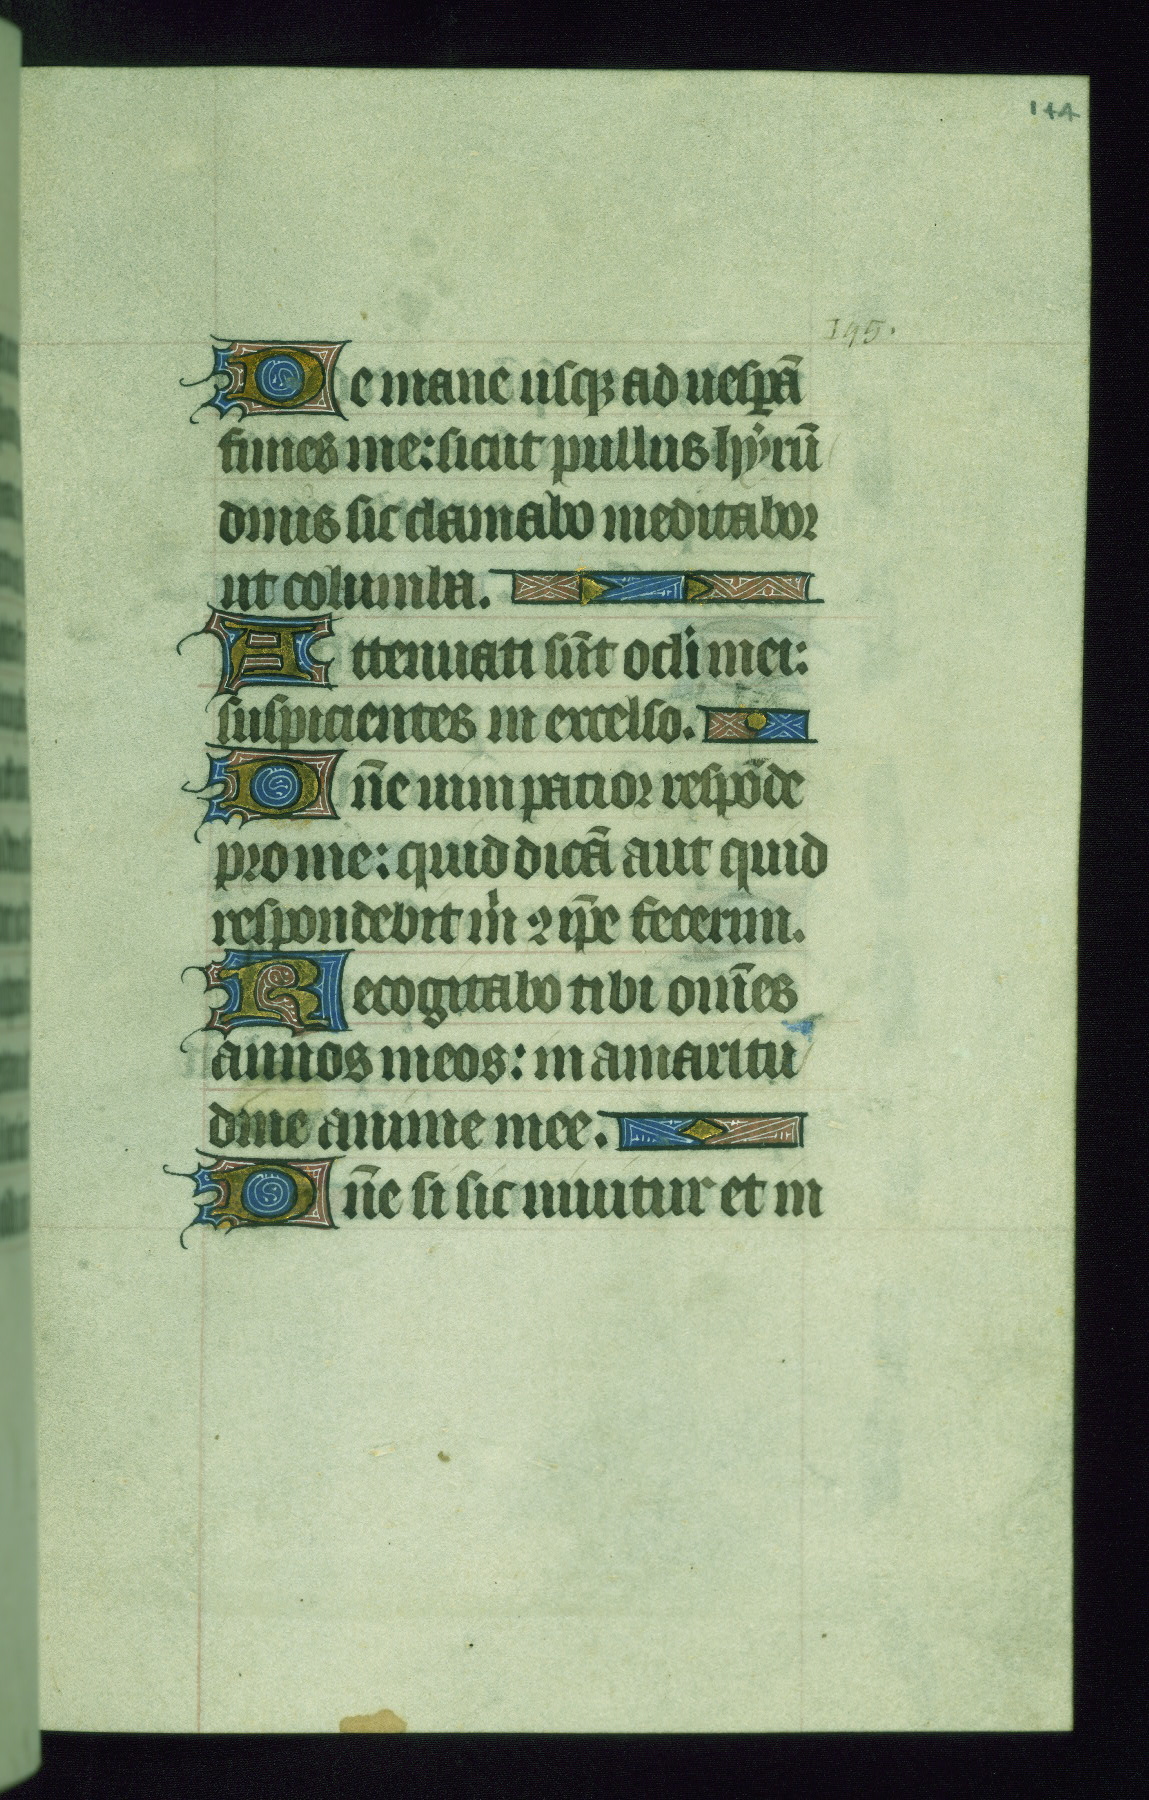 144
195.
De mane usqꝫ ad uesꝑā
finies me: sicut pullus hyrū
dinis sic clamabo meditabor
ut columba.
Attenuati sūt ocli mei:
suspicientes in excelso.
Dn̄e uim patior respōde
pro me: quid dicā aut quid
respondebit m̍ ꝛ ip̄e fecerim.
Recogitabo tibi om̄es
annos meos: in amaritu
dine anime mee.
Dn̄e si sic uiuitur et in